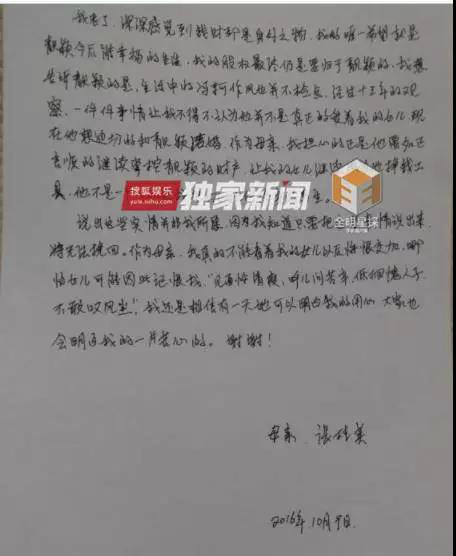 我老了，深深感觉到钱财都是身外之物，我的唯一希望就是
靓颖今后能幸福的生活，我的股权最终仍是要归于靓颖的，我想
告诉靓颖的是，生活中的冯轲作风也并不检点，经过十三年的观
察，一件件事情让我不得不认为他并不是真正的爱着我的女儿，现
在他想迫切的和靓颖结婚，作为母亲，我担心的正是他要名正
言顺的继续掌控靓颖的财产，让我的女儿继续
具，他不是一
搜狐娱乐
yule.sohu.com
独家新闻
全明星探
说出这些实情并非我所愿，因为我知道只要把
情说出来，
将无法挽回。作为母亲，我真的不能看着我的女儿以后悔恨交加，哪
怕女儿可能因此记恨我，“见面怜清瘦，呼儿问苦辛，低徊愧人子，
不敢叹风尘”，我还是相信有一天她可以明白我的用心，大家也
会明了我的一片苦心的。谢谢！
母亲：张桂英
2016年10月9日